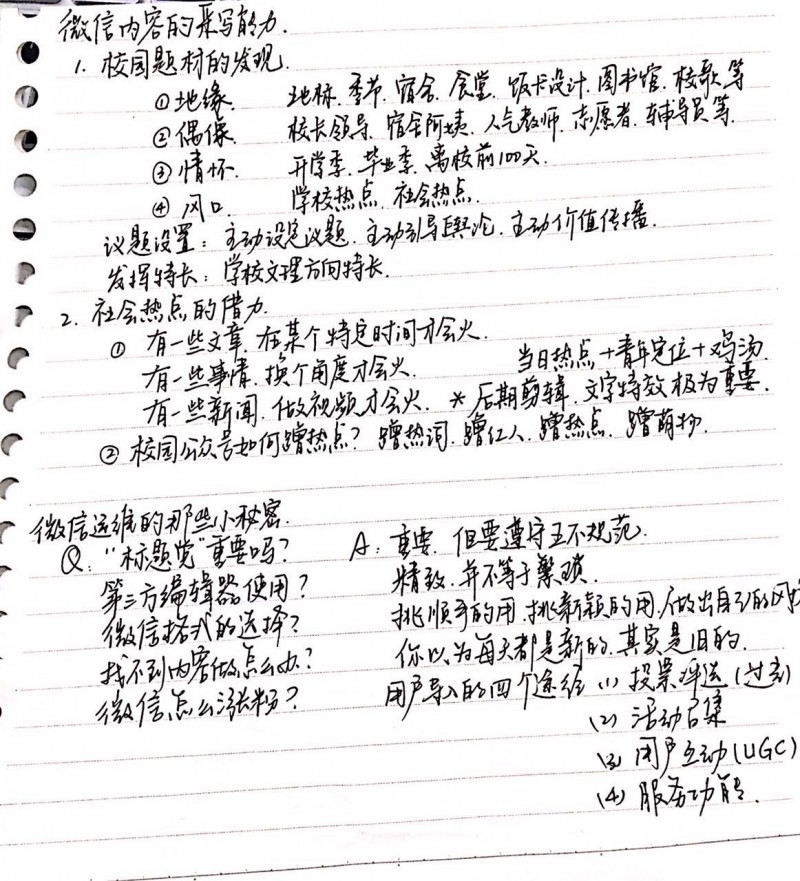 微信内容的采写能力.
1. 校园题材的发现.
① 地缘. 地标. 季节. 宿舍. 食堂. 饭卡设计. 图书馆. 校歌. 等
② 偶像. 校长领导. 宿舍阿姨. 人气教师. 志愿者. 辅导员等.
③ 情怀. 开学季. 毕业季. 离校前100天.
④ 风口. 学校热点. 社会热点.
议题设置: 主动设定议题. 主动引导舆论. 主动价值传播.
发挥特长: 学校文理方向特长.
2. 社会热点的借力.
① 有一些文章. 在某个特定时间才会火.
有一些事情. 换个角度才会火. 当日热点+青年定位+鸡汤.
有一些新闻. 做视频才会火. * 后期剪辑. 文字特效极为重要.
② 校园公众号如何蹭热点? 蹭热词. 蹭红人. 蹭热点. 蹭萌物.
微信运维的那些小秘密.
Q: "标题党"重要吗? A: 重要. 但要遵守五不规范.
第三方编辑器使用? 精致. 并不等于繁琐.
微信格式的选择? 挑顺手的用. 挑新颖的用. 做出自己的风
找不到内容做怎么办? 你以为每天都是新的. 其实是旧的.
微信怎么涨粉? 用户导入的四个途径 (1) 投票评选(过刻)
(2) 活动召集
(3) 用户互动(UGC)
(4) 服务功能.